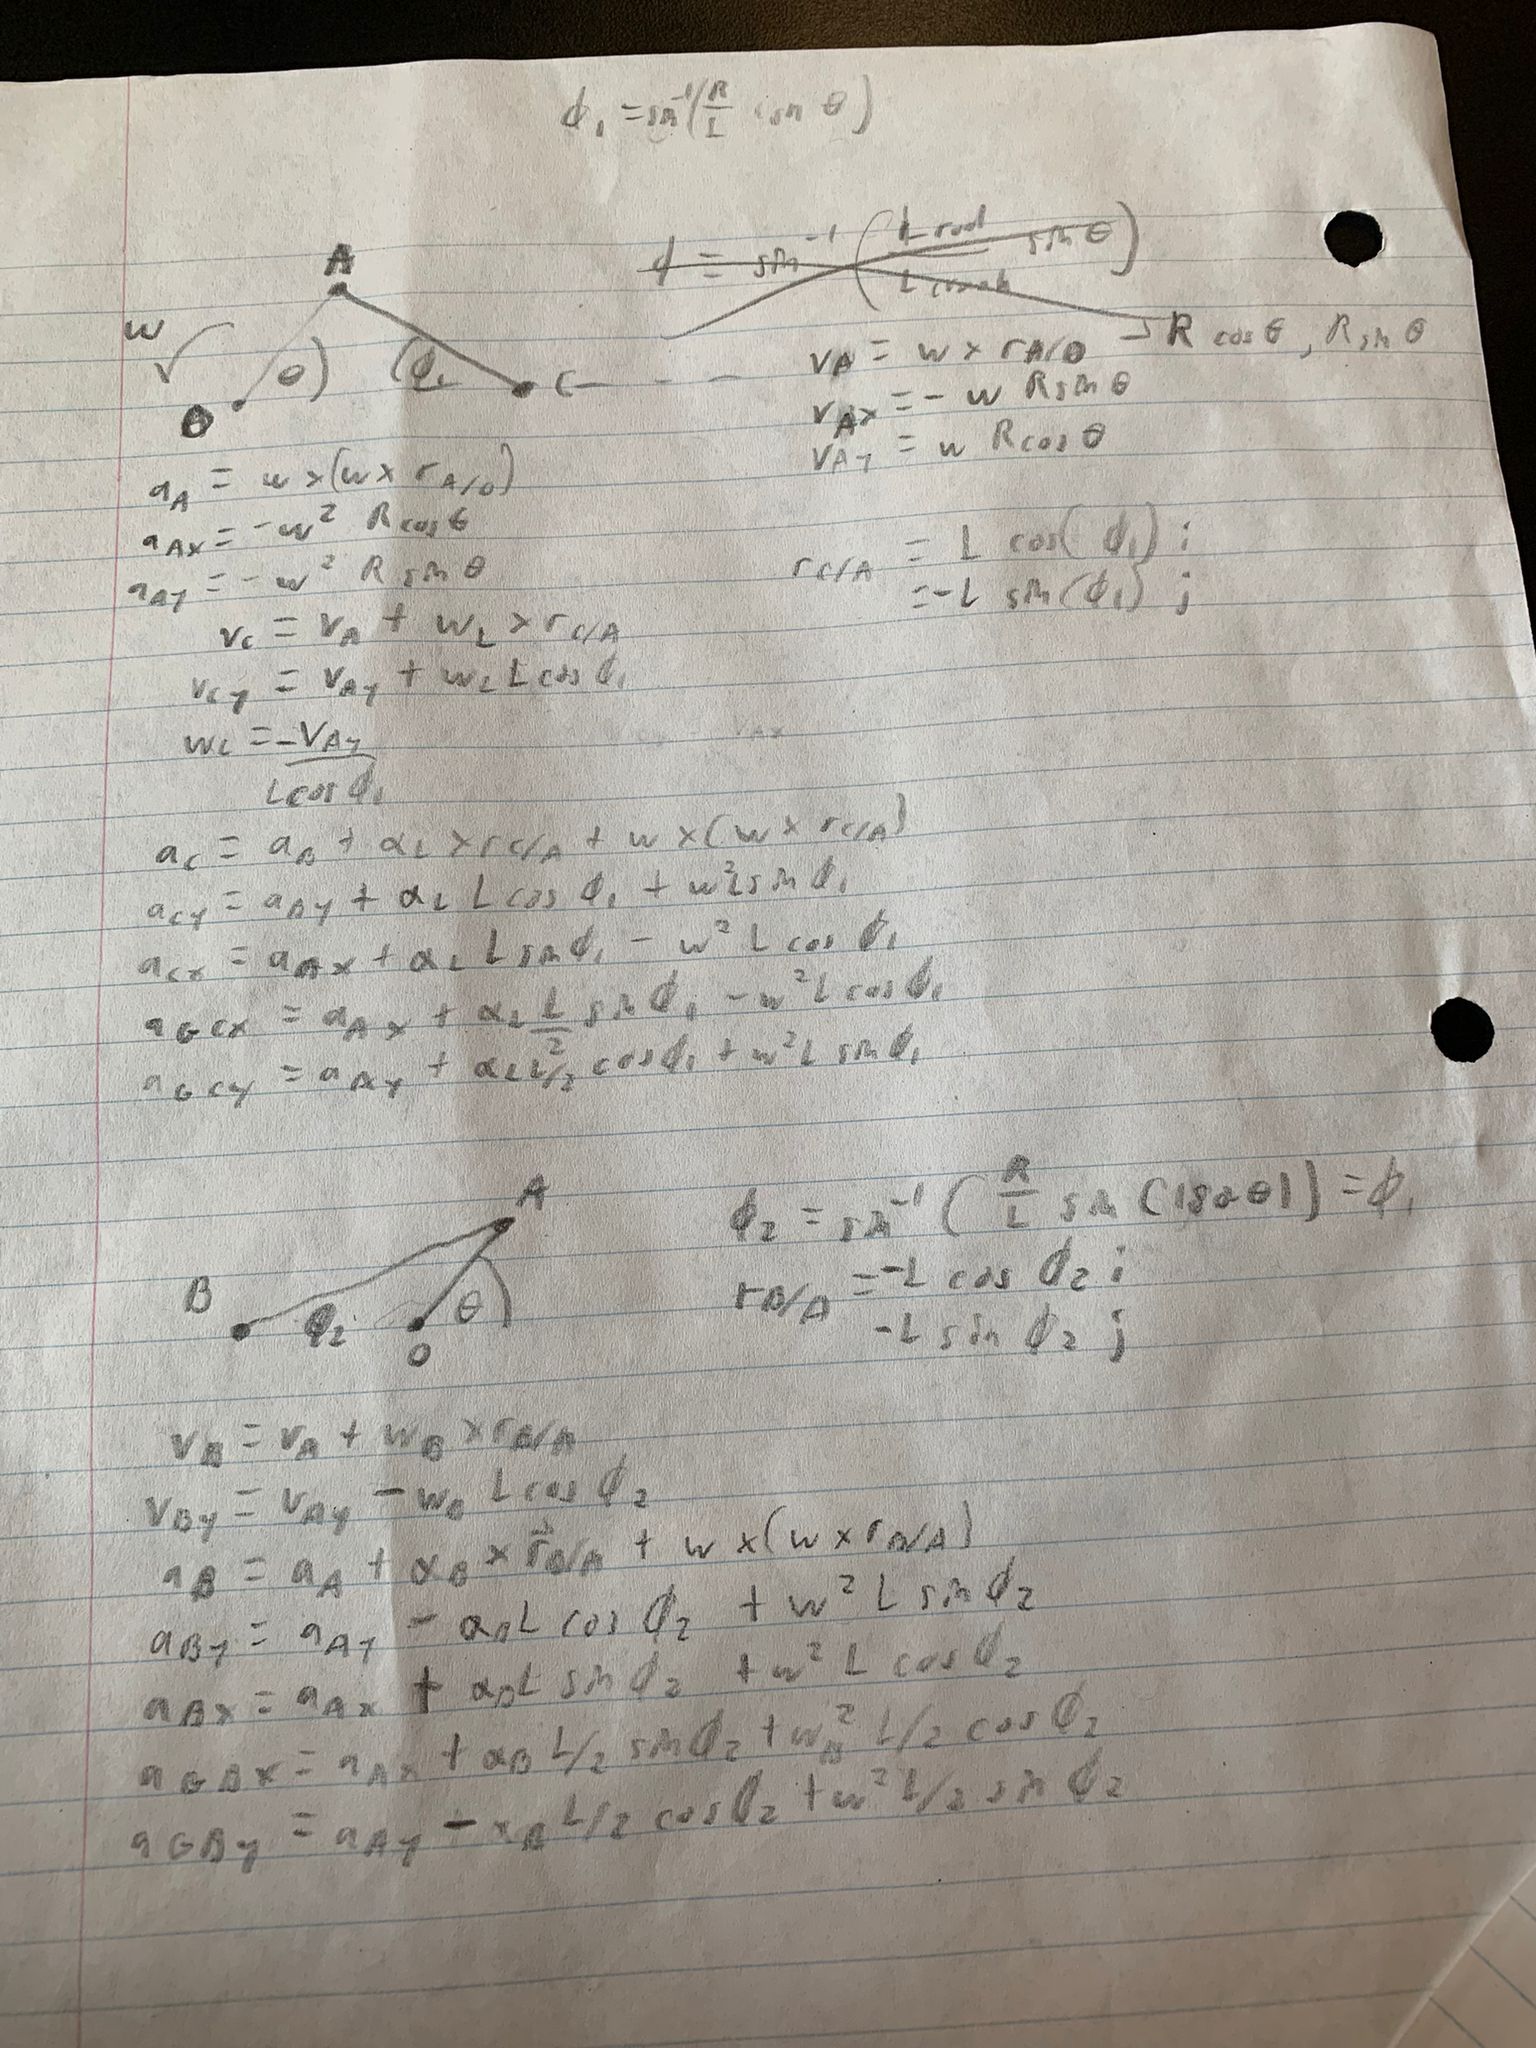 ϕ₁ = sin⁻¹(R/L sin θ)
A
ϕ = sin⁻¹(L rod/L crank sin θ)
w
θ
ϕ₁
C
O
vA = w × rA/O → R cos θ, R sin θ
vAx = - w R sin θ
vAy = w R cos θ
aA = w × (w × rA/O)
aAx = -w² R cos θ
aAy = -w² R sin θ
rC/A = L cos(ϕ₁) i
= -L sin(ϕ₁) j
vC = vA + wL × rC/A
vCy = vAy + wL L cos ϕ₁
wL = -VAy/L cos ϕ₁
vAx
aC = aB + αL × rC/A + w × (w × rC/A)
aCy = aAy + αL L cos ϕ₁ + w² L sin ϕ₁
aCx = aAx + αL L sin ϕ₁ - w² L cos ϕ₁
aGCx = aAx + αL L/2 sin ϕ₁ - w² L cos ϕ₁
aGCy = aAy + αL L/2 cos ϕ₁ + w² L sin ϕ₁
A
B
ϕ₂
O
θ
ϕ₂ = sin⁻¹(R/L sin(180-θ)) = ϕ₁
rB/A = -L cos ϕ₂ i
-L sin ϕ₂ j
vB = vA + wB × rB/A
vBy = vAy - wB L cos ϕ₂
aB = aA + αB × r⃗B/A + w × (w × rB/A)
aBy = aAy - αB L cos ϕ₂ + w² L sin ϕ₂
aBx = aAx + αB L sin ϕ₂ + w² L cos ϕ₂
aGBx = aAx + αB L/2 sin ϕ₂ + wB² L/2 cos ϕ₂
aGBy = aAy - αB L/2 cos ϕ₂ + w² L/2 sin ϕ₂